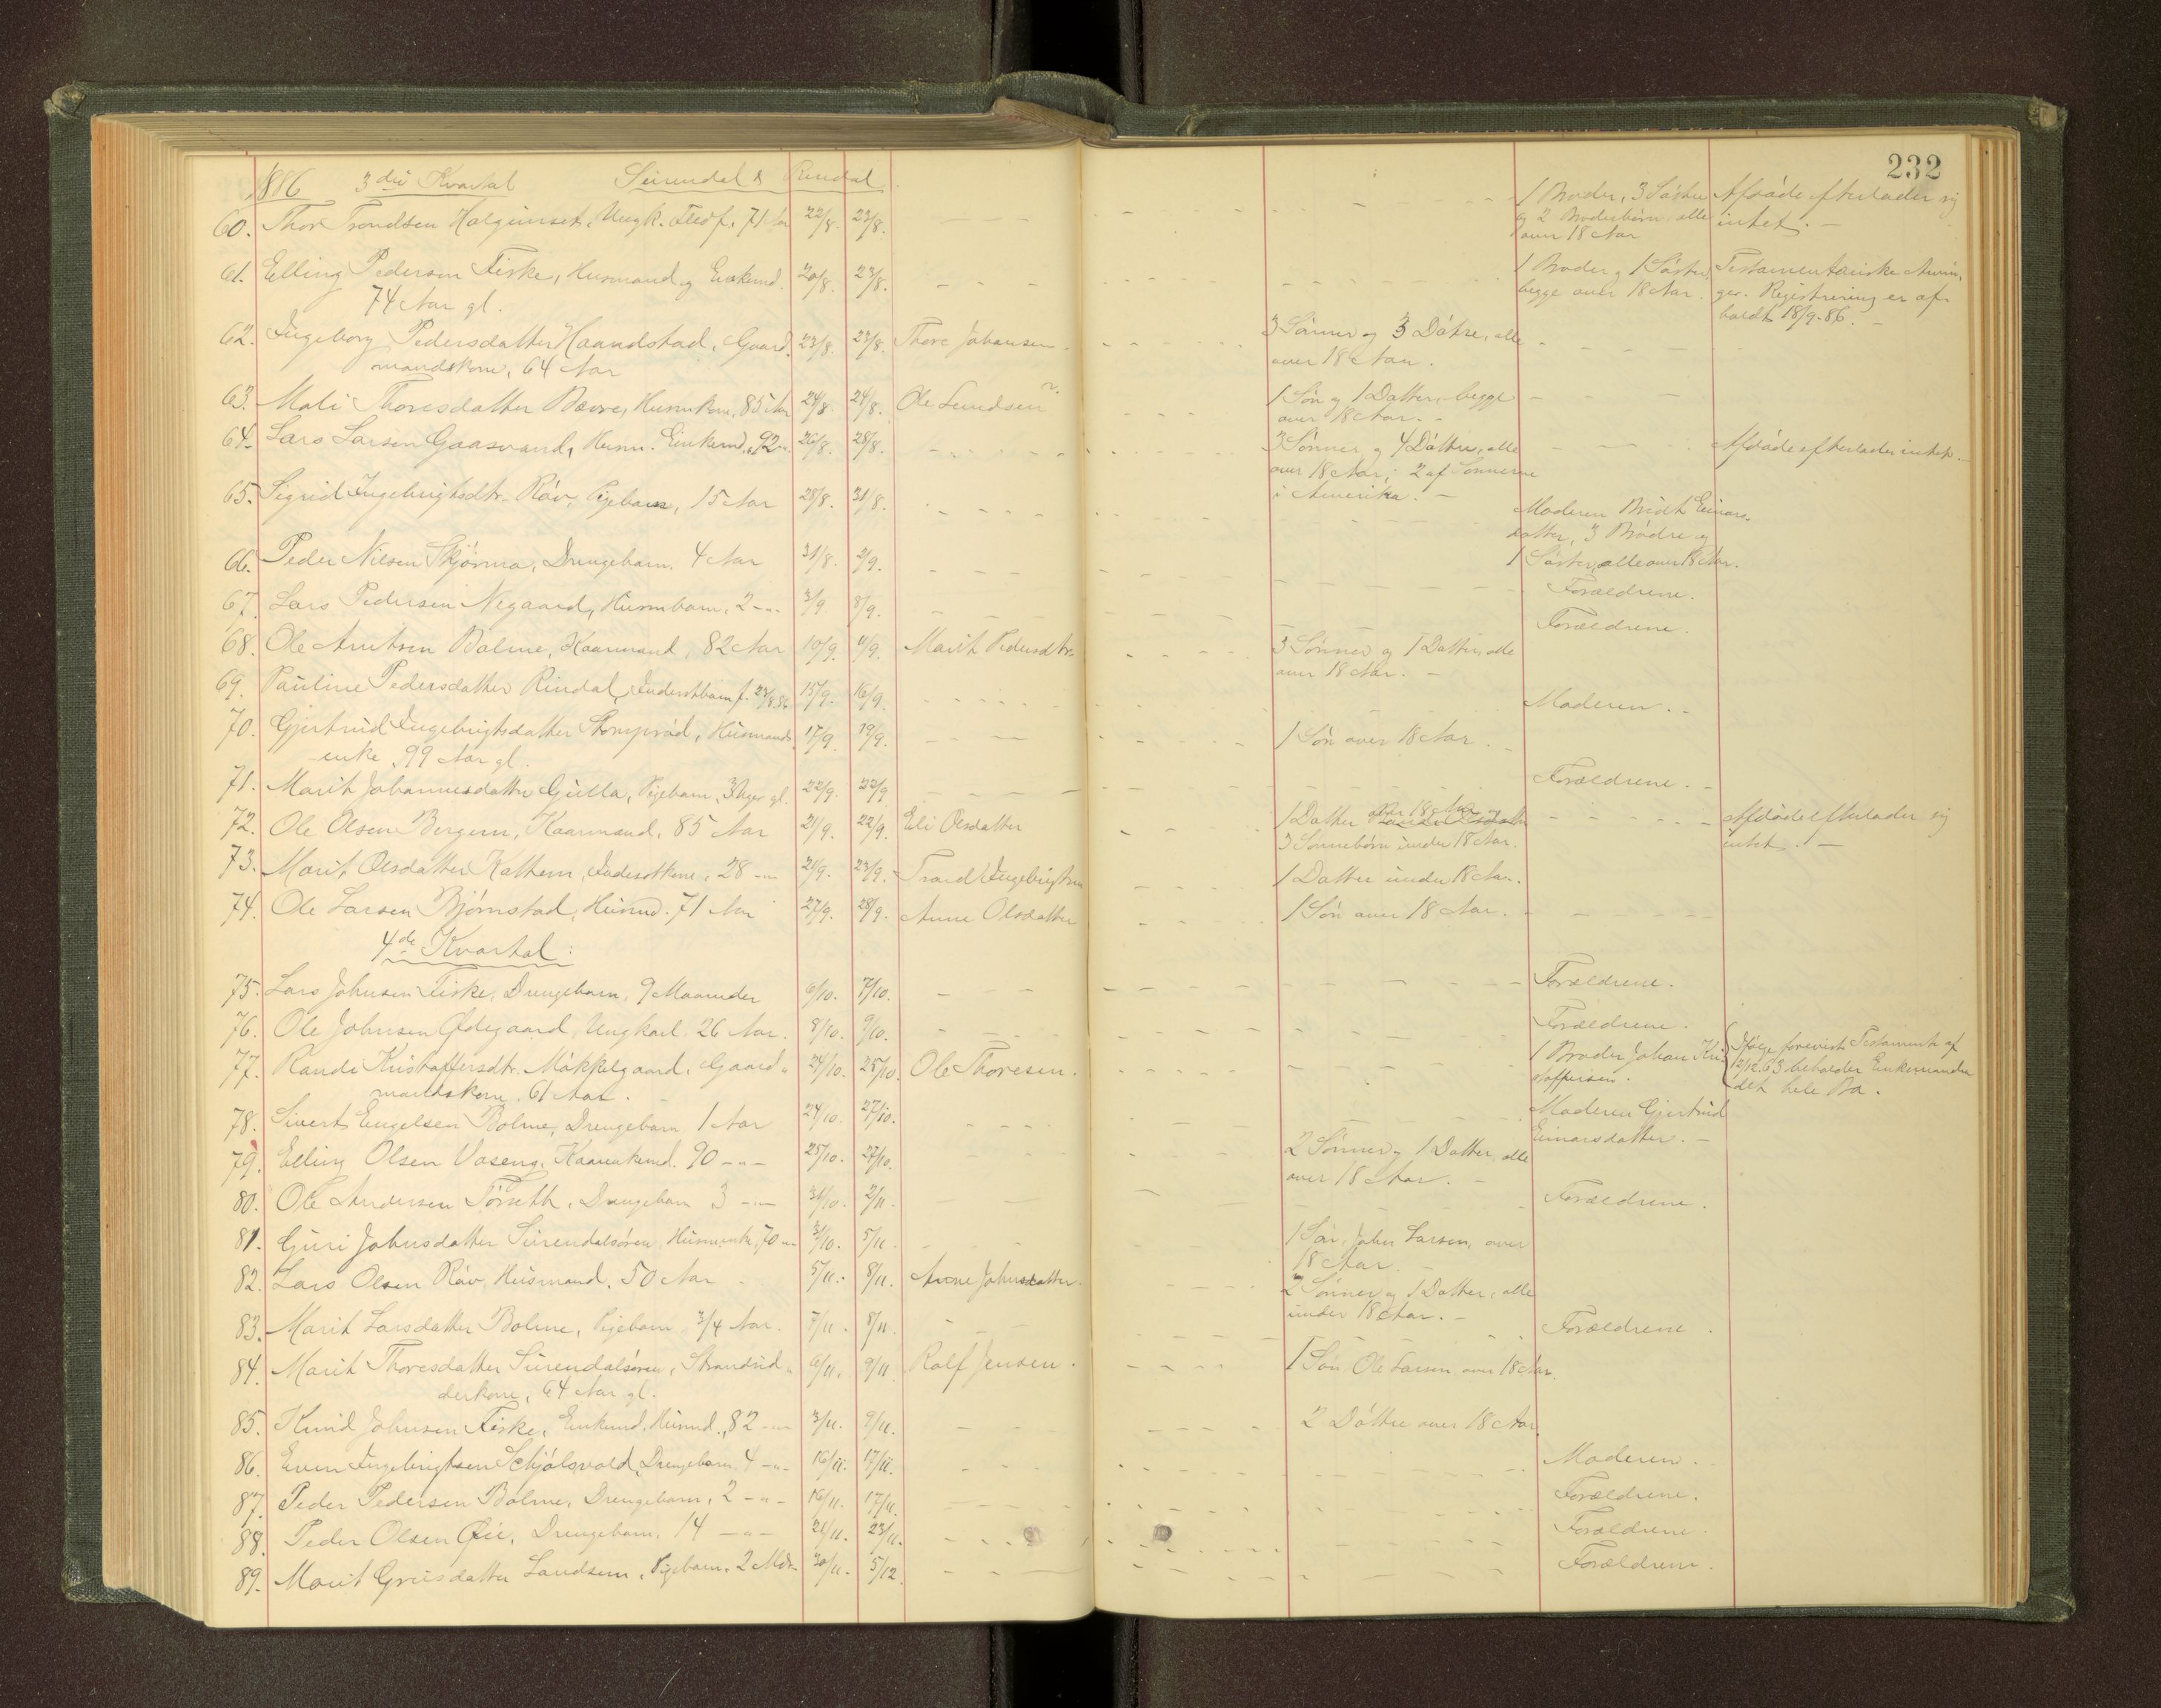 232
1886 3die Kvartal Surendal & Rindal
60. Thor Trondsen Halgunset, Ungk. Flædf. 71 Aar 22/8. 23/8. 1 Broder, 3 Søstre Afdøde efterlader sig
og 2 Broderbørn, alle intet. —
over 18 Aar
61. Elling Pedersen Fiske, Husmand og Enkemd. 20/8. 23/8. 1 Broder og 1 Søster, Testamentariske Arvin-
74 Aar gl. begge over 18 Aar. ger. Registrering er af-
holdt 18/9-86. —
62. Ingeborg Pedersdatter Haandstad, Gaard- 23/8. 23/8. Thore Johansen. 3 Sønner og 3 Døtre, alle
mandskone, 64 Aar over 18 Aar.
63. Mali Thoresdatter Bævre, Husmkone, 85 Aar 24/8. 24/8. Ole Lundsen 1 Søn og 1 Datter, begge
over 18 Aar. -
64. Lars Larsen Gaasvand, Husm. Enkemd., 92 -"- 26/8. 28/8. 3 Sønner og 4 Døttre, alle Afdøde efterlader intet. —
over 18 Aar; 2 af Sønnerne
i Amerika. —
65. Sigrid Ingebrigtsdtr. Røv, Pigebarn, 15 Aar 28/8. 31/8. Moderen Bridt Einars-
datter, 3 Brødre og
1 Søster, alle over 18 Aar.
66. Peder Nilsen Skjørma, Drengebarn. 4 Aar 31/8. 2/9. Forældrene.
67. Lars Pedersen Negaard, Husmbarn, 2 -"- 3/9. 8/9. Forældrene.
68. Ole Arntsen Bolme, Kaarmand, 82 Aar 10/9. 11/9. Marit Pedersdtr. 3 Sønner og 1 Datter, alle
over 18 Aar. —
69. Pauline Pedersdatter Rindal, Inderstbarn f. 23/8.86 15/9. 16/9. Moderen. -
70. Gjertrud Ingebrigtsdatter Stomprød, Husmands- 17/9. 19/9. 1 Søn over 18 Aar.
enke, 99 Aar gl.
71. Marit Johannesdatter Gulla, Pigebarn, 3 Uger gl. 22/9. 22/9 Forældrene.
72. Ole Olsen Bergem, Kaarmand, 85 Aar 21/9. 22/9. Eli Olsdatter 1 Datter over 18 Aar og Afdøde efterlader sig
3 Sønnebørn under 18 Aar. intet. ! —
73. Marit Olsdatter Kathem, Inderstkone, 28 -"- 21/9. 23/9. Trond Ingebrigtsen 1 Datter under 18 Aar.
74. Ole Larsen Bjørnstad, Husmd. 71 Aar 27/9. 28/9. Anne Olsdatter 1 Søn over 18 Aar.
4de Kvartal:
75. Lars Johnsen Fiske, Drengebarn, 9 Maaneder 6/10. 7/10. Forældrene.
76. Ole Johnsen Øldegaard, Ungkarl. 26 Aar. 8/10. 9/10. Forældrene.
77. Randi Kristoffersdtr. Møkkelgaard, Gaard- 24/10. 25/10. Ole Thoresen. 1 Broder Johan Kri- Ifølge forevist Testament af
mandskone. 61 Aar. stoffersen. 12/12.63 beholder Enkemanden
det hele Bo.
78. Sivert Engelsen Bolme, Drengebarn 1 Aar 24/10. 27/10. Moderen Gjertrud
Einarsdatter. —
79. Elling Olsen Vaseng, Kaarenkemd. 90 -"- 25/10. 27/10. 2 Sønner og 1 Datter, alle
over 18 Aar. -
80. Ole Andersen Tørseth, Drengebarn 3 -"- 31/10. 2/11. Forældrene.
81. Guri Johnsdatter Surendalsøren, Husmenke, 70 -"- 31/10. 5/11. 1 Søn, John Larsen, over
18 Aar. —
82. Lars Olsen Røv, Husmand. 50 Aar 5/11. 8/11. Anne Johnsdatter. 2 Sønner og 1 Datter, alle
under 18 Aar. —
83. Marit Larsdatter Bolme, Pigebarn 3/4 Aar. 7/11. 8/11. Forældrene.
84. Marit Thoresdatter Surendalsøren, Strandsid- 6/11. 9/11. Rolf Jensen. 1 Søn Ole Larsen, over 18 Aar.
derkone, 64 Aar gl.
85. Knud Johnsen Fiske, Enkemd. Husmd., 82 -"- 3/11. 9/11. 2 Døttre over 18 Aar.
86. Even Ingebrigtsen Schjølsvold, Drengebarn. 4 -"- 16/11. 17/11. Moderen.
87. Peder Pedersen Bolme, Drengebarn, 2 -"- 16/11. 17/11. Forældrene.
88. Peder Olsen Øie, Drengebarn, 14 -"- 21/11. 23/11. Forældrene.
89. Marit Gresdatter Landsem, Pigebarn, 2 Mdr. 30/11. 5/12. Forældrene.